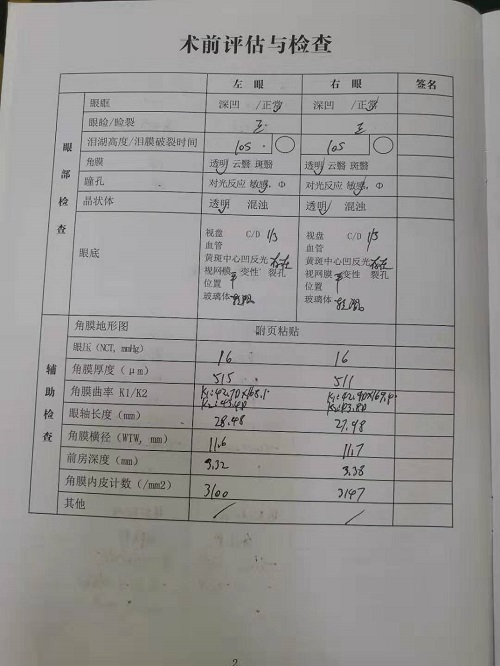 术前评估与检查
左 眼 右 眼 签名
眼部检查
眼眶 深凹 /正常 深凹 /正常
眼睑/睑裂 正 正
泪湖高度/泪膜破裂时间 10S 10S
角膜 透明 云翳 斑翳 透明 云翳 斑翳
瞳孔 对光反应 敏感, Φ 对光反应 敏感, Φ
晶状体 透明/ 混浊 透明/ 混浊
眼底
视盘 C/D 1/3 视盘 C/D 1/3
血管 血管
黄斑中心凹反光 存在 黄斑中心凹反光 存在
视网膜 平 变性 裂孔 视网膜 平 变性 裂孔
位置 位置
玻璃体 玻璃体
辅助检查
角膜地形图 附页粘贴
眼压(NCT, mmHg) 16 16
角膜厚度(μm) 515 511
角膜曲率 K1/K2 K1:42.70X168.1 K1:42.90X169.
K2:43.40
眼轴长度(mm) 28.48 27.98
角膜横径(WTW, mm) 11.6 11.7
前房深度(mm) 3.32 3.38
角膜内皮计数(/mm2) 3100 3147
其他 / /
2